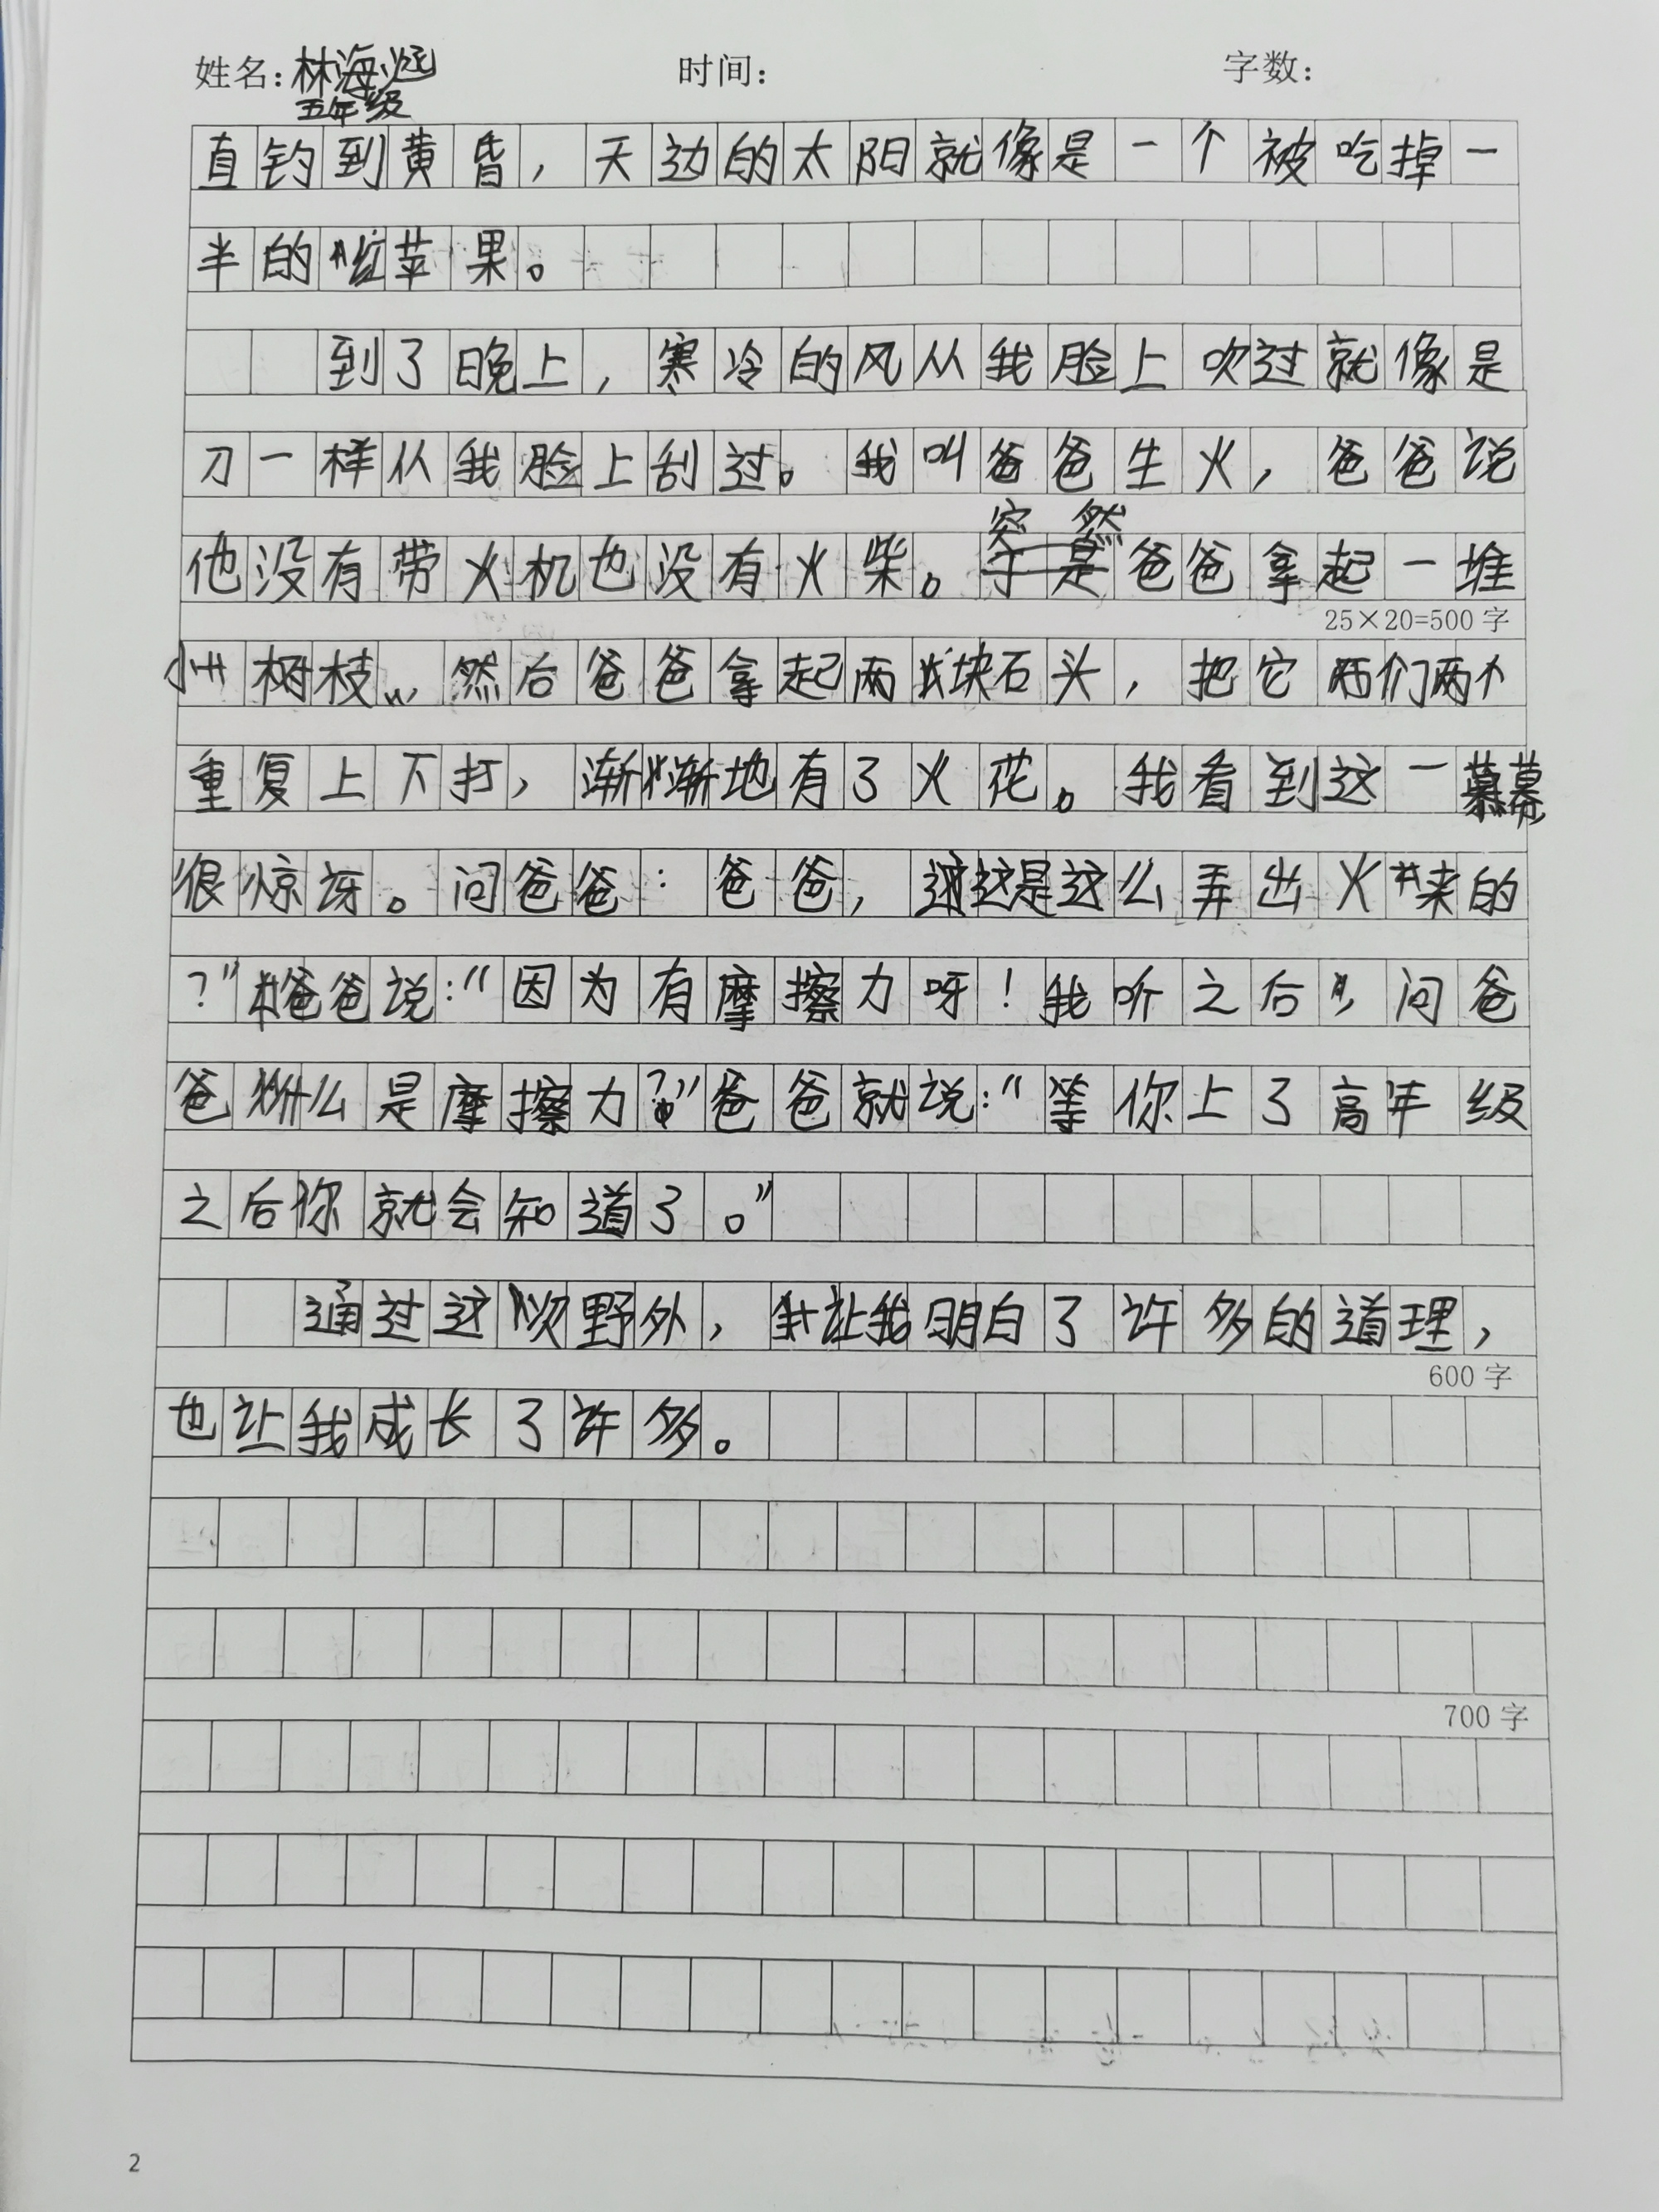 姓名：林海涵 时间： 字数：
五年级
直钓到黄昏，天边的太阳就像是一个被吃掉一
半的红苹果。
到了晚上，寒冷的风从我脸上吹过就像是
刀一样从我脸上刮过。我叫爸爸生火，爸爸说
突然
他没有带火机也没有火柴。于是爸爸拿起一堆
25×20=500 字
小树枝，然后爸爸拿起两块石头，把它们两个
重复上下打，渐渐地有了火花。我看到这一幕
很惊讶。问爸爸：爸爸，这是这么弄出火来的
？”爸爸说：“因为有摩擦力呀！我听之后，问爸
爸什么是摩擦力？”爸爸就说：“等你上了高年级
之后你就会知道了。”
通过这次野外，让我明白了许多的道理，
600 字
也让我成长了许多。
700 字
2